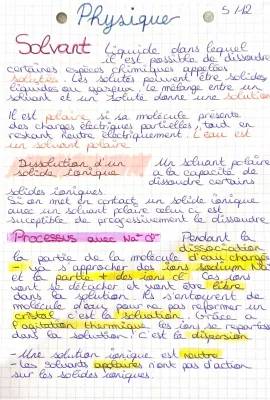 Physique
5/12
Solvant Liquide dans lequel
il est possible de dissoudre
certaines espèces chimiques appelées
solutés. Les solutés peuvent être solides
liquides ou gazeux. Le mélange entre un
solvant et un soluté donne une solution
Il est polaire si sa molécule présente
des charges électriques partielles, tout en
restant neutre électriquement. L'eau est
un solvant polaire.
Dissolution d'un
solide ionique
Un solvant polaire
a la capacité de
dissoudre certains
solides ioniques.
Si on met en contact un solide ionique
avec un solvant polaire celui ci est
susceptible de progressivement le dissoudre
Processus avec Na+ Cl-
Pendant la
dissociation
la partie de la molécule d'eau chargée
- va s'approcher des ions sodium Na+
et la partie + des ions cl-. Les ions
vont se détacher et vont être libre
dans la solution. Ils s'entourent de
molécule d'eau pour ne pas reformer un
cristal c'est la solvatation. Grâce a
l'agitation thermique les ions se repartiss
dans la solution. C'est la dispersion
- Une solution ionique est neutre
- Les solvants apolaires n'ont pas d'action
sur les solides ioniques.